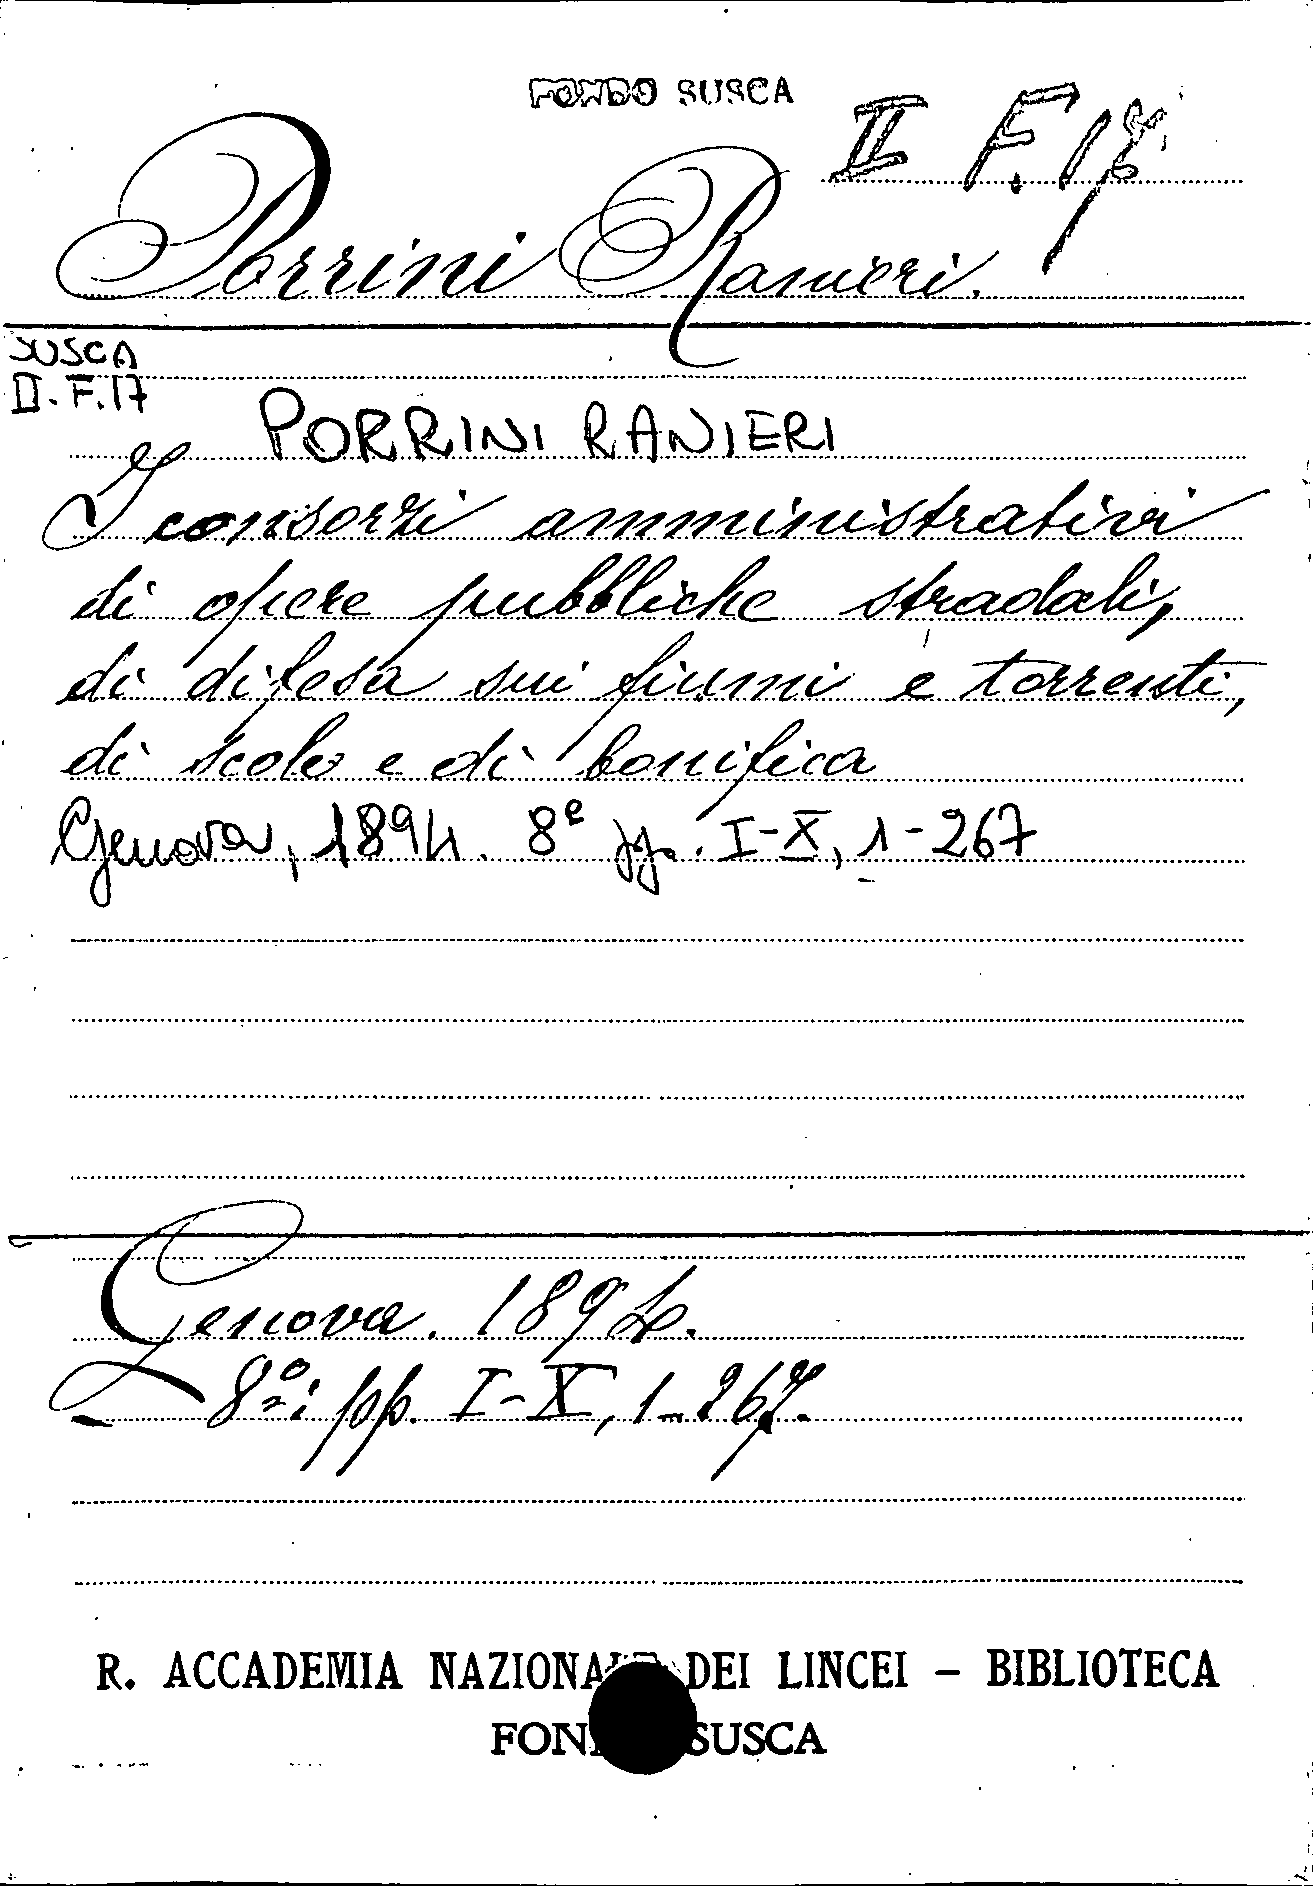 FONDO SUSCA
II F. 17
Porrini Ranieri.
SUSCA
II. F. 17
PORRINI RANIERI
I consorzi amministrativi
di opere pubbliche stradali,
di difesa sui fiumi e torrenti,
di scolo e di bonifica
Genova, 1894. 8º pp. I-X, 1-267
Genova. 1894.
8º: pp. I-X, 1-267.
R. ACCADEMIA NAZIONALE DEI LINCEI – BIBLIOTECA
FONDO SUSCA